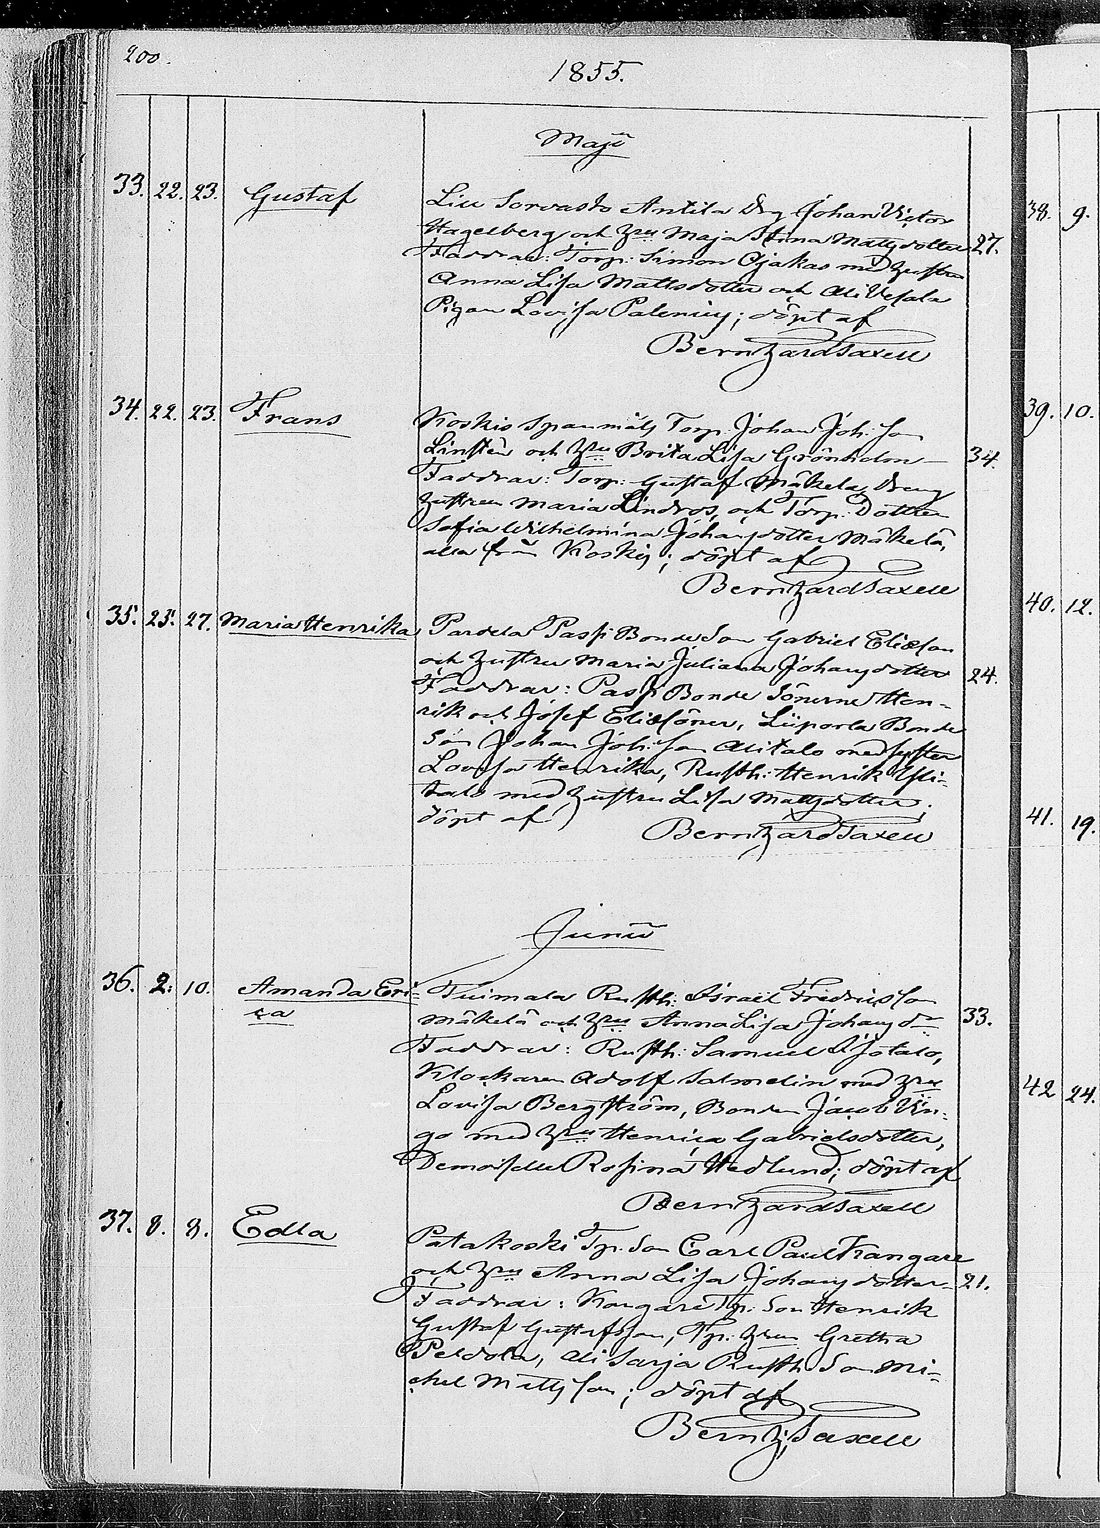 200.
1855.
Maji
33. 22. 23. Gustaf Liu Sorvasto Antila Drg Johan Victor
Hagelberg och Hru Maja Stina Mattsdotter 27.
Faddrar: Torp: Simon Ojakas med hustru
Anna Lisa Mattsdotter och Ali Vesala
Pigan Lovisa ; döpt af
Bernhard Saxell
34. 22. 23. Frans Koskis Torp. Johan Joh: Son
Linstén och Hru Brita Lisa Grönholm 34.
Faddrar: Torp: Gustaf Mäkelä, Dreng
hustrun Maria Lindros, och Torp. Dottren
Sofia Wilhelmina Johansdotter Mäkelä,
alla från Koskis; döpt af
Bernhard Saxell
35. 25. 27. Maria Henrika Pardela Passi Bonde Son Gabriel Eliæson
och hustru Maria Juliana Johansdotter 24.
Faddrar: Passi Bonde Sönerne Hen-
rik och Josef Eliæsöner, Liiporla Bonde
Son Johan Joh: Son Alitalo med syster
Lovisa Henrika, Rusth: Henrik Yli-
talo med hustru Lisa Mattsdotter;
döpt af
Bernhard Saxell
Junii
36. 2. 10. Amanda Eri- Tuimala Rusth: Israel Fredricsson
ca Mäkelä och Hru Anna Lisa Johansdr 33.
Faddrar: Rusth: Samuel
Klockaren Adolf Salmelin med Hru
Lovisa Bergström, Bonden Jacob Un-
go med Hru Henrica Gabrielsdotter,
Demoiselle Rosina Hedlund; döpt af
Bernhard Saxell
37. 8. 8. Edla Patakoski Tp. Son Carl Paul Kangare
och Hru Anna Lisa Johansdotter 21.
Faddrar: Kangare Tp. Son Henrik
Gustaf Gustafsson, Tp. Hrun Gretha
Peldola, Ali Sarja Rusth. Son Mi-
chel Mattsson; döpt af
Bernh: Saxell
38. 9.
39. 10.
40. 12.
41. 19.
42 24.